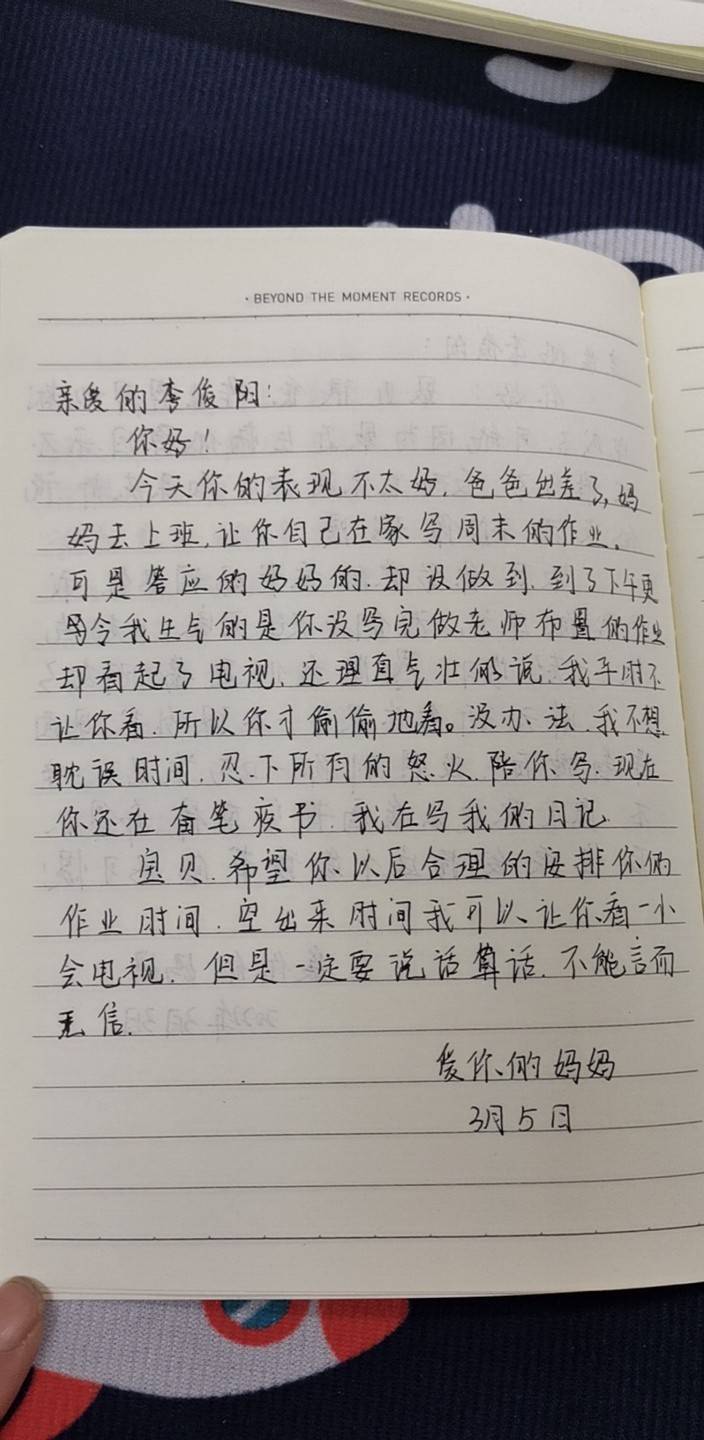 · BEYOND THE MOMENT RECORDS ·
亲爱的李俊阳：
你好！
今天你的表现不太好，爸爸出差了，妈
妈去上班，让你自己在家写周末的作业，
可是答应的好好的，却没做到，到了下午更
另令我生气的是你没写完做老师布置的作业
却看起了电视，还理直气壮的说，我平时不
让你看，所以你才偷偷地看。没办法，我不想
耽误时间，忍下所有的怒火，陪你写，现在
你还在奋笔疾书，我在写我的日记
宝贝，希望你以后合理的安排你的
作业时间，空出来时间我可以让你看一小
会电视，但是一定要说话算话，不能言而
无信．
爱你的妈妈
3月5日